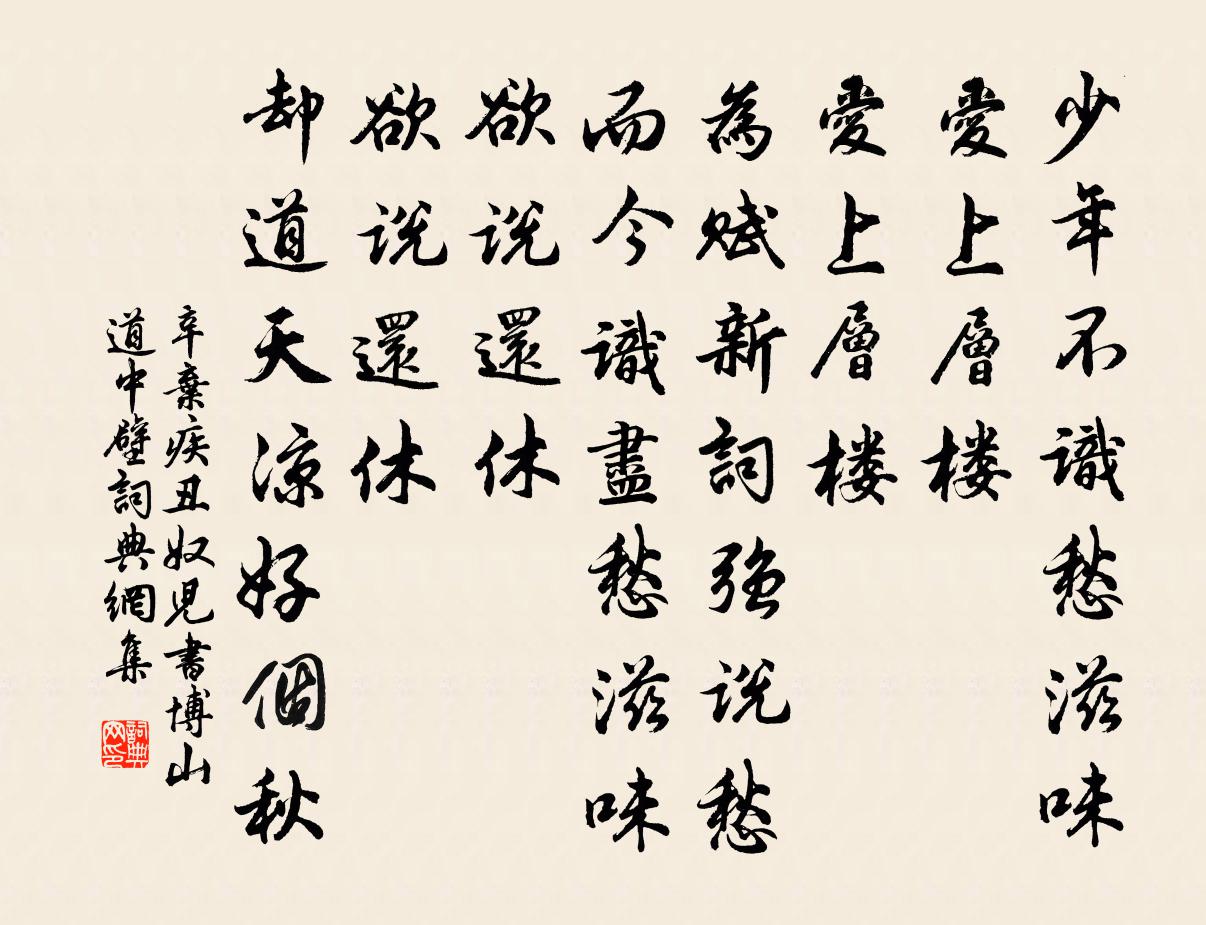 少年不識愁滋味
愛上層楼
愛上層楼
為賦新詞強説愁
而今識盡愁滋味
欲説還休
欲説還休
却道天涼好個秋
辛棄疾丑奴児書博山
道中壁詞典網集
詞典
网印